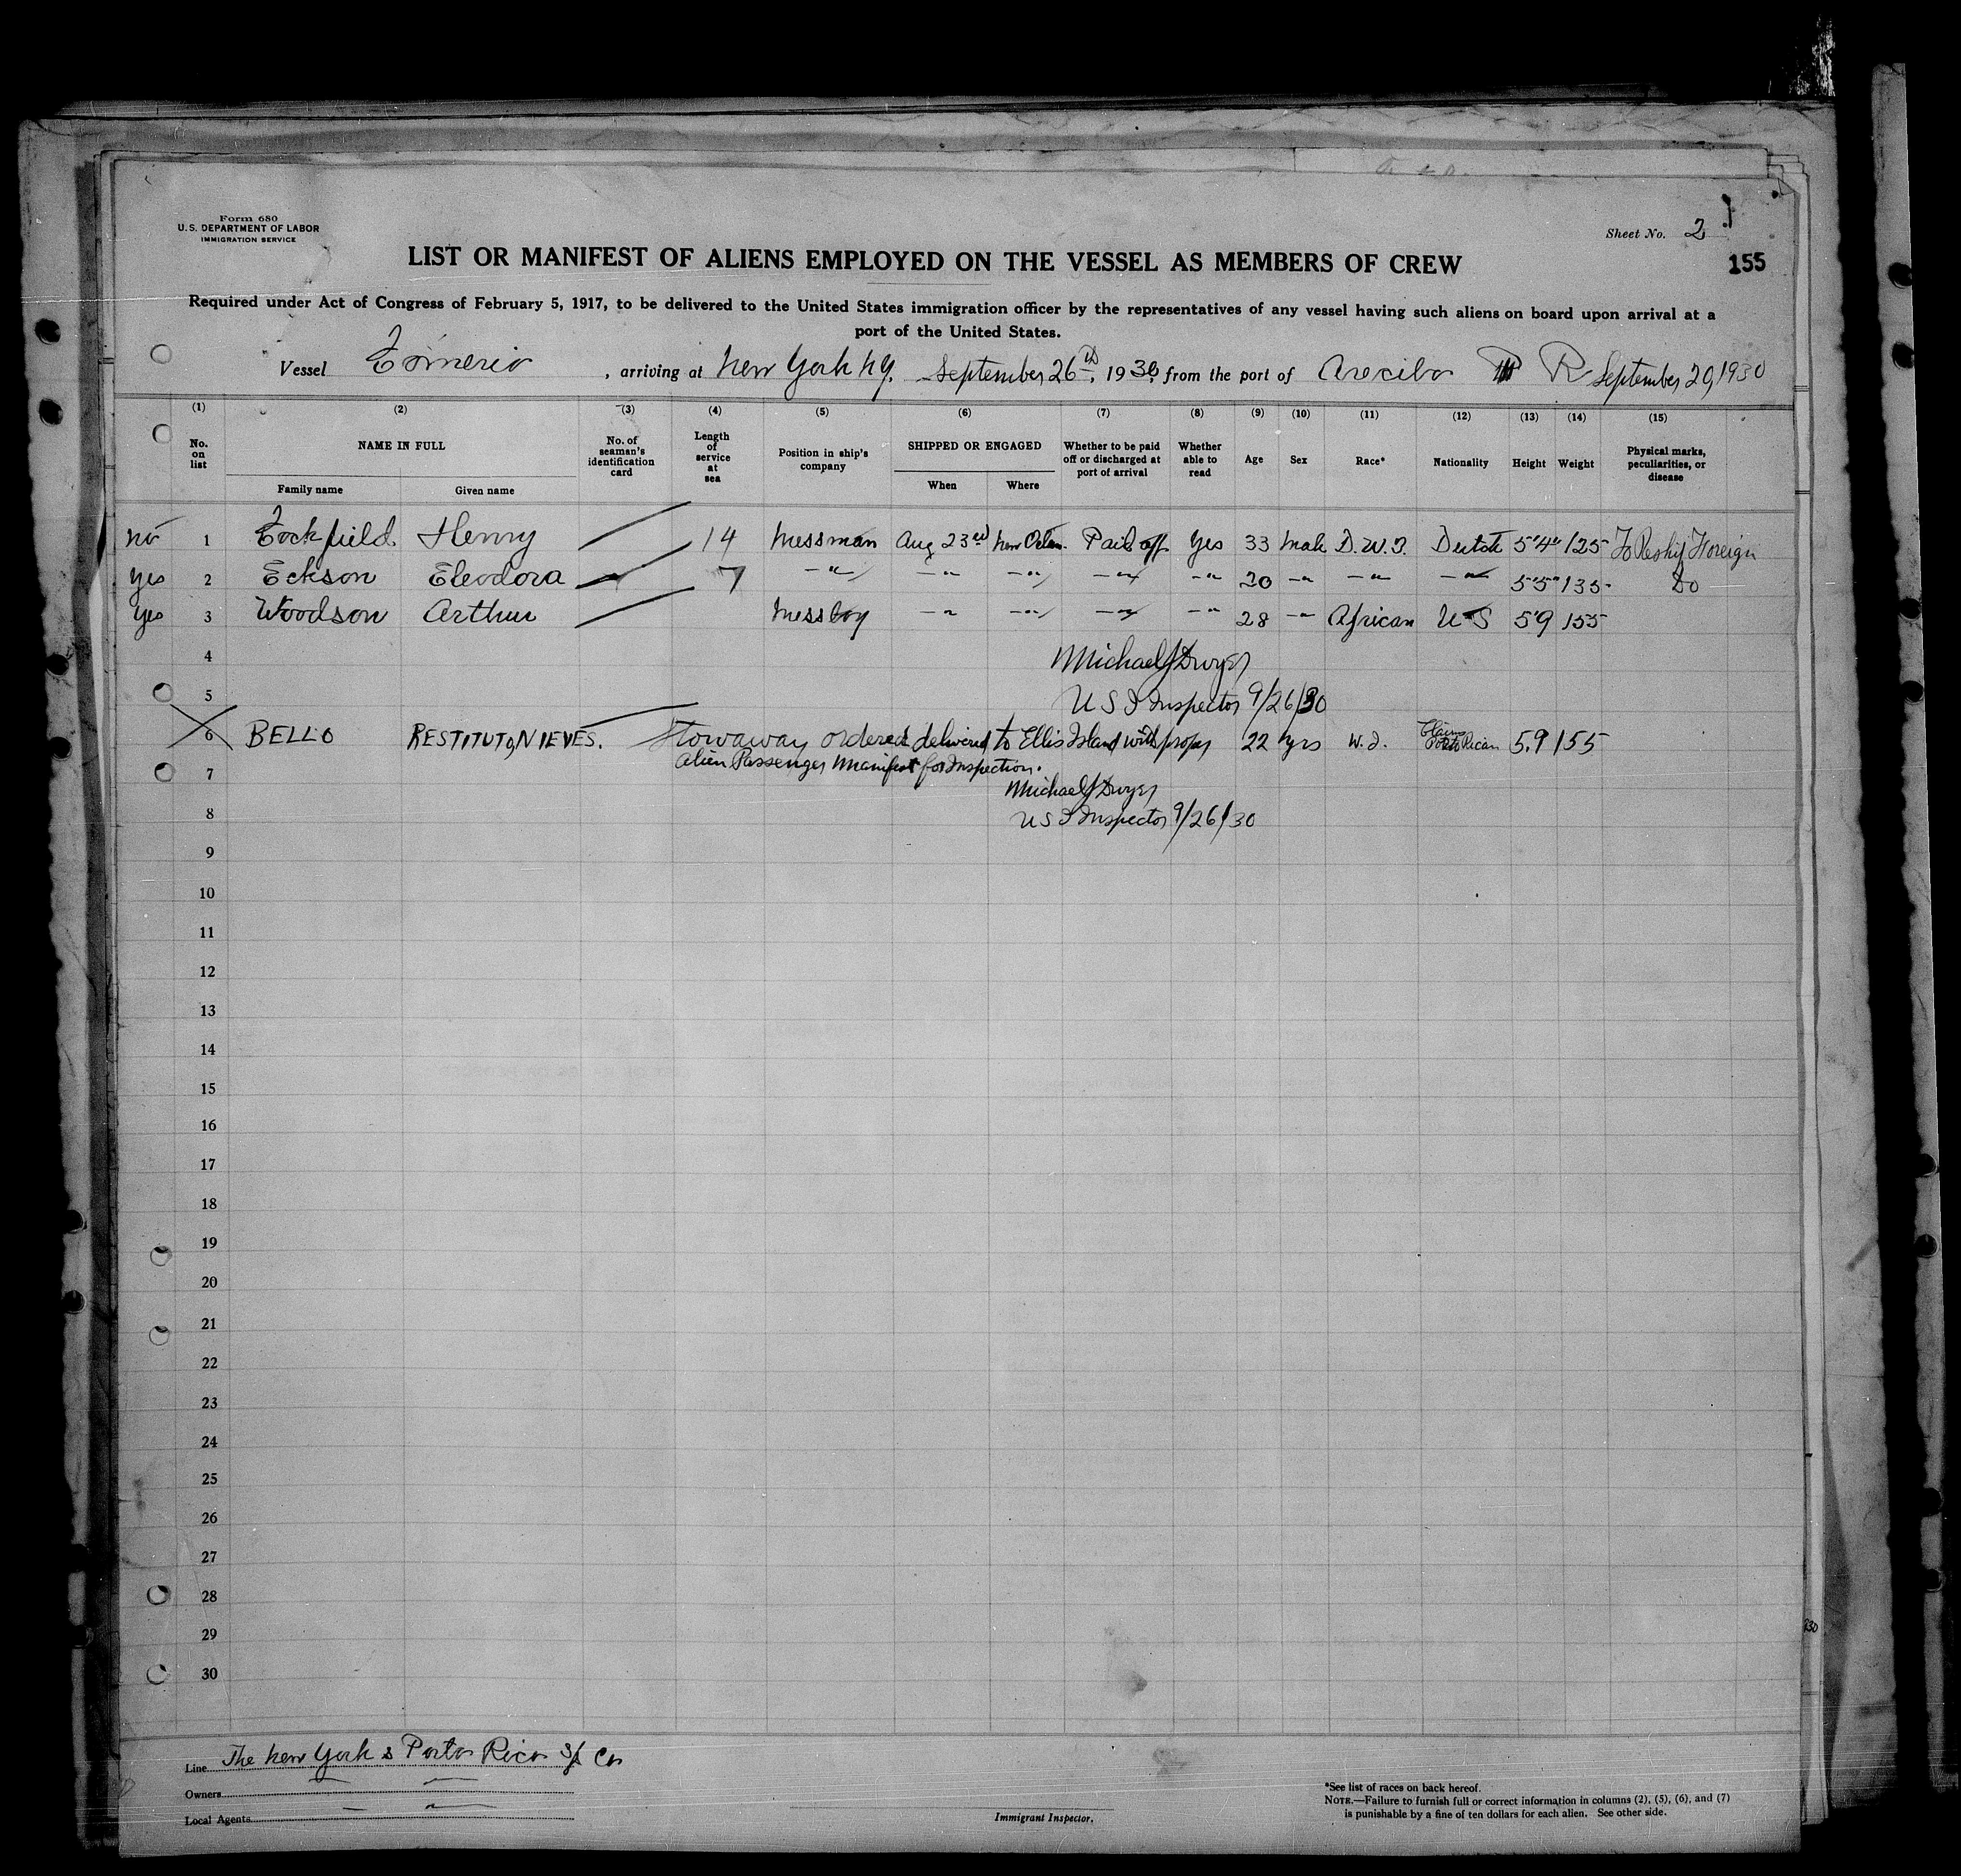 Form 680
U.S. DEPARTMENT OF LABOR
IMMIGRATION SERVICE
Sheet No. 2
155
LIST OR MANIFEST OF ALIENS EMPLOYED ON THE VESSEL AS MEMBERS OF CREW
Required under Act of Congress of February 5, 1917, to be delivered to the United States immigration officer by the representatives of any vessel having such aliens on board upon arrival at a
port of the United States.
Vessel , arriving at New York N.Y. September 26th, 1930, from the port of Arecibo P R September 20, 1930
(1) (2) (3) (4) (5) (6) (7) (8) (9) (10) (11) (12) (13) (14) (15)
No. on list NAME IN FULL Family name Given name No. of seaman's identification card Length of service at sea Position in ship's company SHIPPED OR ENGAGED When Where Whether to be paid off or discharged at port of arrival Whether able to read Age Sex Race* Nationality Height Weight Physical marks, peculiarities, or disease
no 1 Henry 14 Messman Aug 23rd Paid off Yes 33 Male D.W.I. Dutch 5'4" 125 To Reship Foreign
yes 2 Eckson Eleodora 7 -"- -"- -"- -"- -"- 20 -"- -"- -"- 5'5" 135 Do
yes 3 Woodson Arthur Messboy -"- -"- -"- -"- 28 -"- African U S 5'9 155
4 Michael J Dwyer
5 U S I Inspector 9/26/30
6 BELLO RESTITUTO, NIEVES. Stowaway ordered delivered to Ellis Island with proper 22 yrs W.I. Claims Porto Rican 5.9 155
Alien Passenger Manifest for Inspection.
7
Michael J Dwyer
8 U S I Inspector 9/26/30
9
10
11
12
13
14
15
16
17
18
19
20
21
22
23
24
25
26
27
28
29
30
Line The New York & Porto Rico S/S Co
Owners -"-
Local Agents -"-
Immigrant Inspector.
*See list of races on back hereof.
NOTE.—Failure to furnish full or correct information in columns (2), (5), (6), and (7)
is punishable by a fine of ten dollars for each alien. See other side.